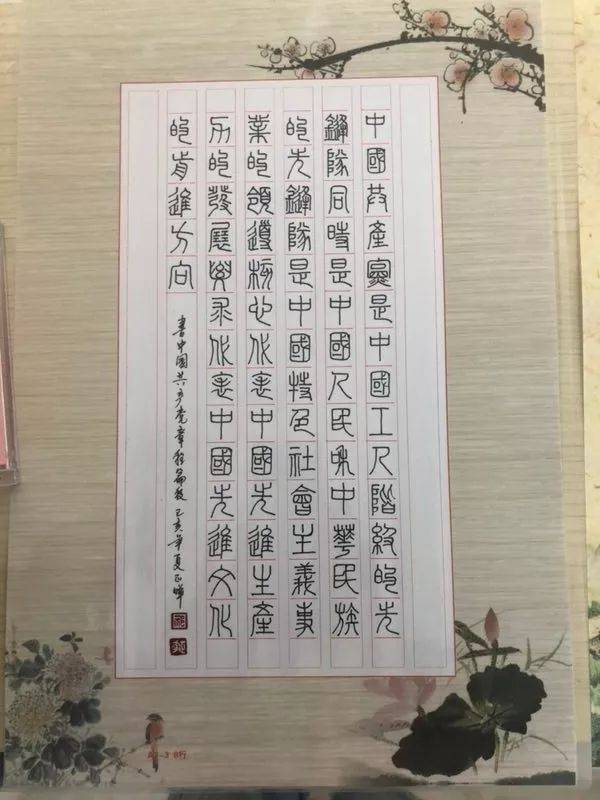 中國共產黨是中國工人階級的先
鋒隊同時是中國人民和中華民族
的先鋒隊是中國特色社會主義事
業的領導核心代表中國先進生產
力的發展要求代表中國先進文化
的前進方向
書中國共产党章程 己亥年夏